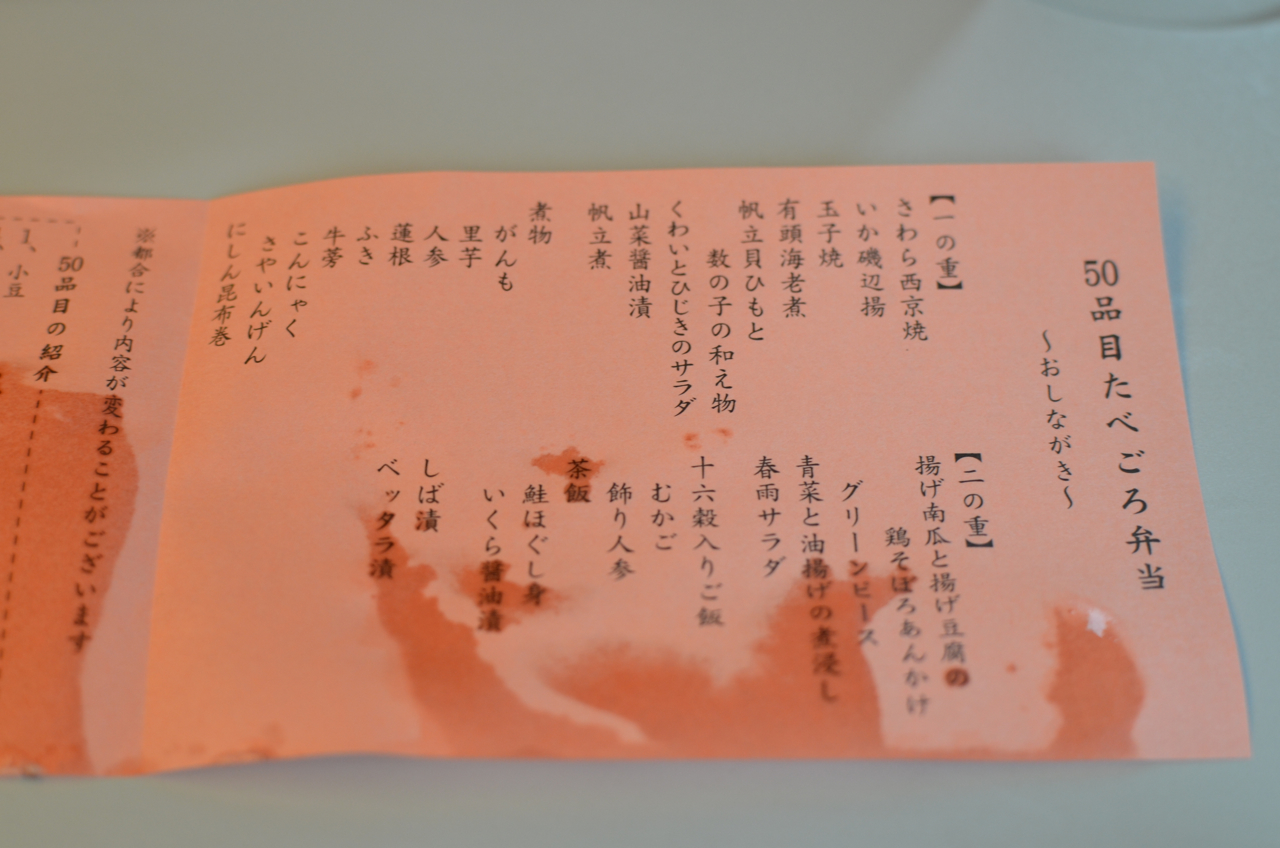 50品目たべごろ弁当
～おしながき～
【一の重】
さわら西京焼
いか磯辺揚
玉子焼
有頭海老煮
帆立貝ひもと
数の子の和え物
くわいとひじきのサラダ
山菜醤油漬
帆立煮
煮物
がんも
里芋
人参
蓮根
ふき
牛蒡
こんにゃく
さやいんげん
にしん昆布巻
【二の重】
揚げ南瓜と揚げ豆腐の
鶏そぼろあんかけ
グリーンピース
青菜と油揚げの煮浸し
春雨サラダ
十六穀入りご飯
むかご
飾り人参
茶飯
鮭ほぐし身
いくら醤油漬
しば漬
ベッタラ漬
※都合により内容が変わることがございます
50品目の紹介
小豆